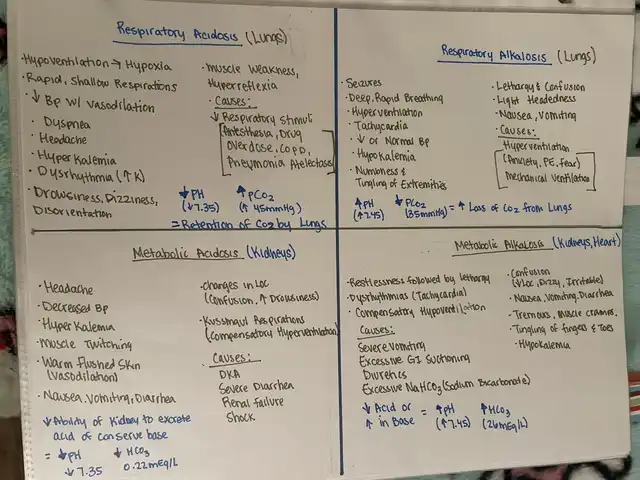 Respiratory Acidosis (Lungs)
Hypoventilation → Hypoxia
• Rapid, Shallow Respirations
• ↓ BP w/ Vasodilation
• Dyspnea
• Headache
• Hyperkalemia
• Dysrhythmia (↑K)
• Drowsiness, Dizziness,
Disorientation
• Muscle Weakness,
Hyperreflexia
• Causes:
↓ Respiratory Stimuli
[Anesthesia, Drug
Overdose, COPD,
Pneumonia Atelectasis]
↓PH
(↓7.35)
↑PCO2
(↑ 45mmHg)
= Retention of CO2 by Lungs
Respiratory Alkalosis (Lungs)
• Seizures
• Deep, Rapid Breathing
• Hyperventilation
• Tachycardia
• ↓ or Normal BP
• Hypokalemia
• Numbness &
Tingling of Extremities
• Lethargy & Confusion
• Light Headedness
• Nausea, Vomiting
• Causes:
Hyperventilation
(Anxiety, PE, Fear)
Mechanical Ventilation
↑PH
(↑7.45)
↓PCO2
(35mmHg)
= ↑ Loss of CO2 from Lungs
Metabolic Acidosis (Kidneys)
• Headache
• Decreased BP
• Hyperkalemia
• Muscle Twitching
• Warm Flushed Skin
(Vasodilation)
• Nausea, Vomiting, Diarrhea
• Changes in LOC
(Confusion, ↑ Drowsiness)
• Kussmaul Respirations
(Compensatory Hyperventilation)
• Causes:
DKA
Severe Diarrhea
Renal Failure
Shock
↓ Ability of Kidney to excrete
acid of conserve base
= ↓PH
↓7.35
↓HCO3
0.22mEq/L
Metabolic Alkalosis (Kidneys, Heart)
• Restlessness followed by Lethargy
• Dysrhythmias (Tachycardia)
• Compensatory Hypoventilation
Causes:
Severe Vomiting
Excessive GI Suctioning
Diuretics
Excessive NaHCO3 (Sodium Bicarbonate)
• Confusion
(↓LOC, Dizzy, Irritable)
• Nausea, Vomiting, Diarrhea
• Tremors, Muscle Cramps,
• Tingling of fingers & Toes
• Hypokalemia
↓ Acid or
↑ in Base
= ↑PH
(↑7.45)
↑HCO3
(26mEq/L)